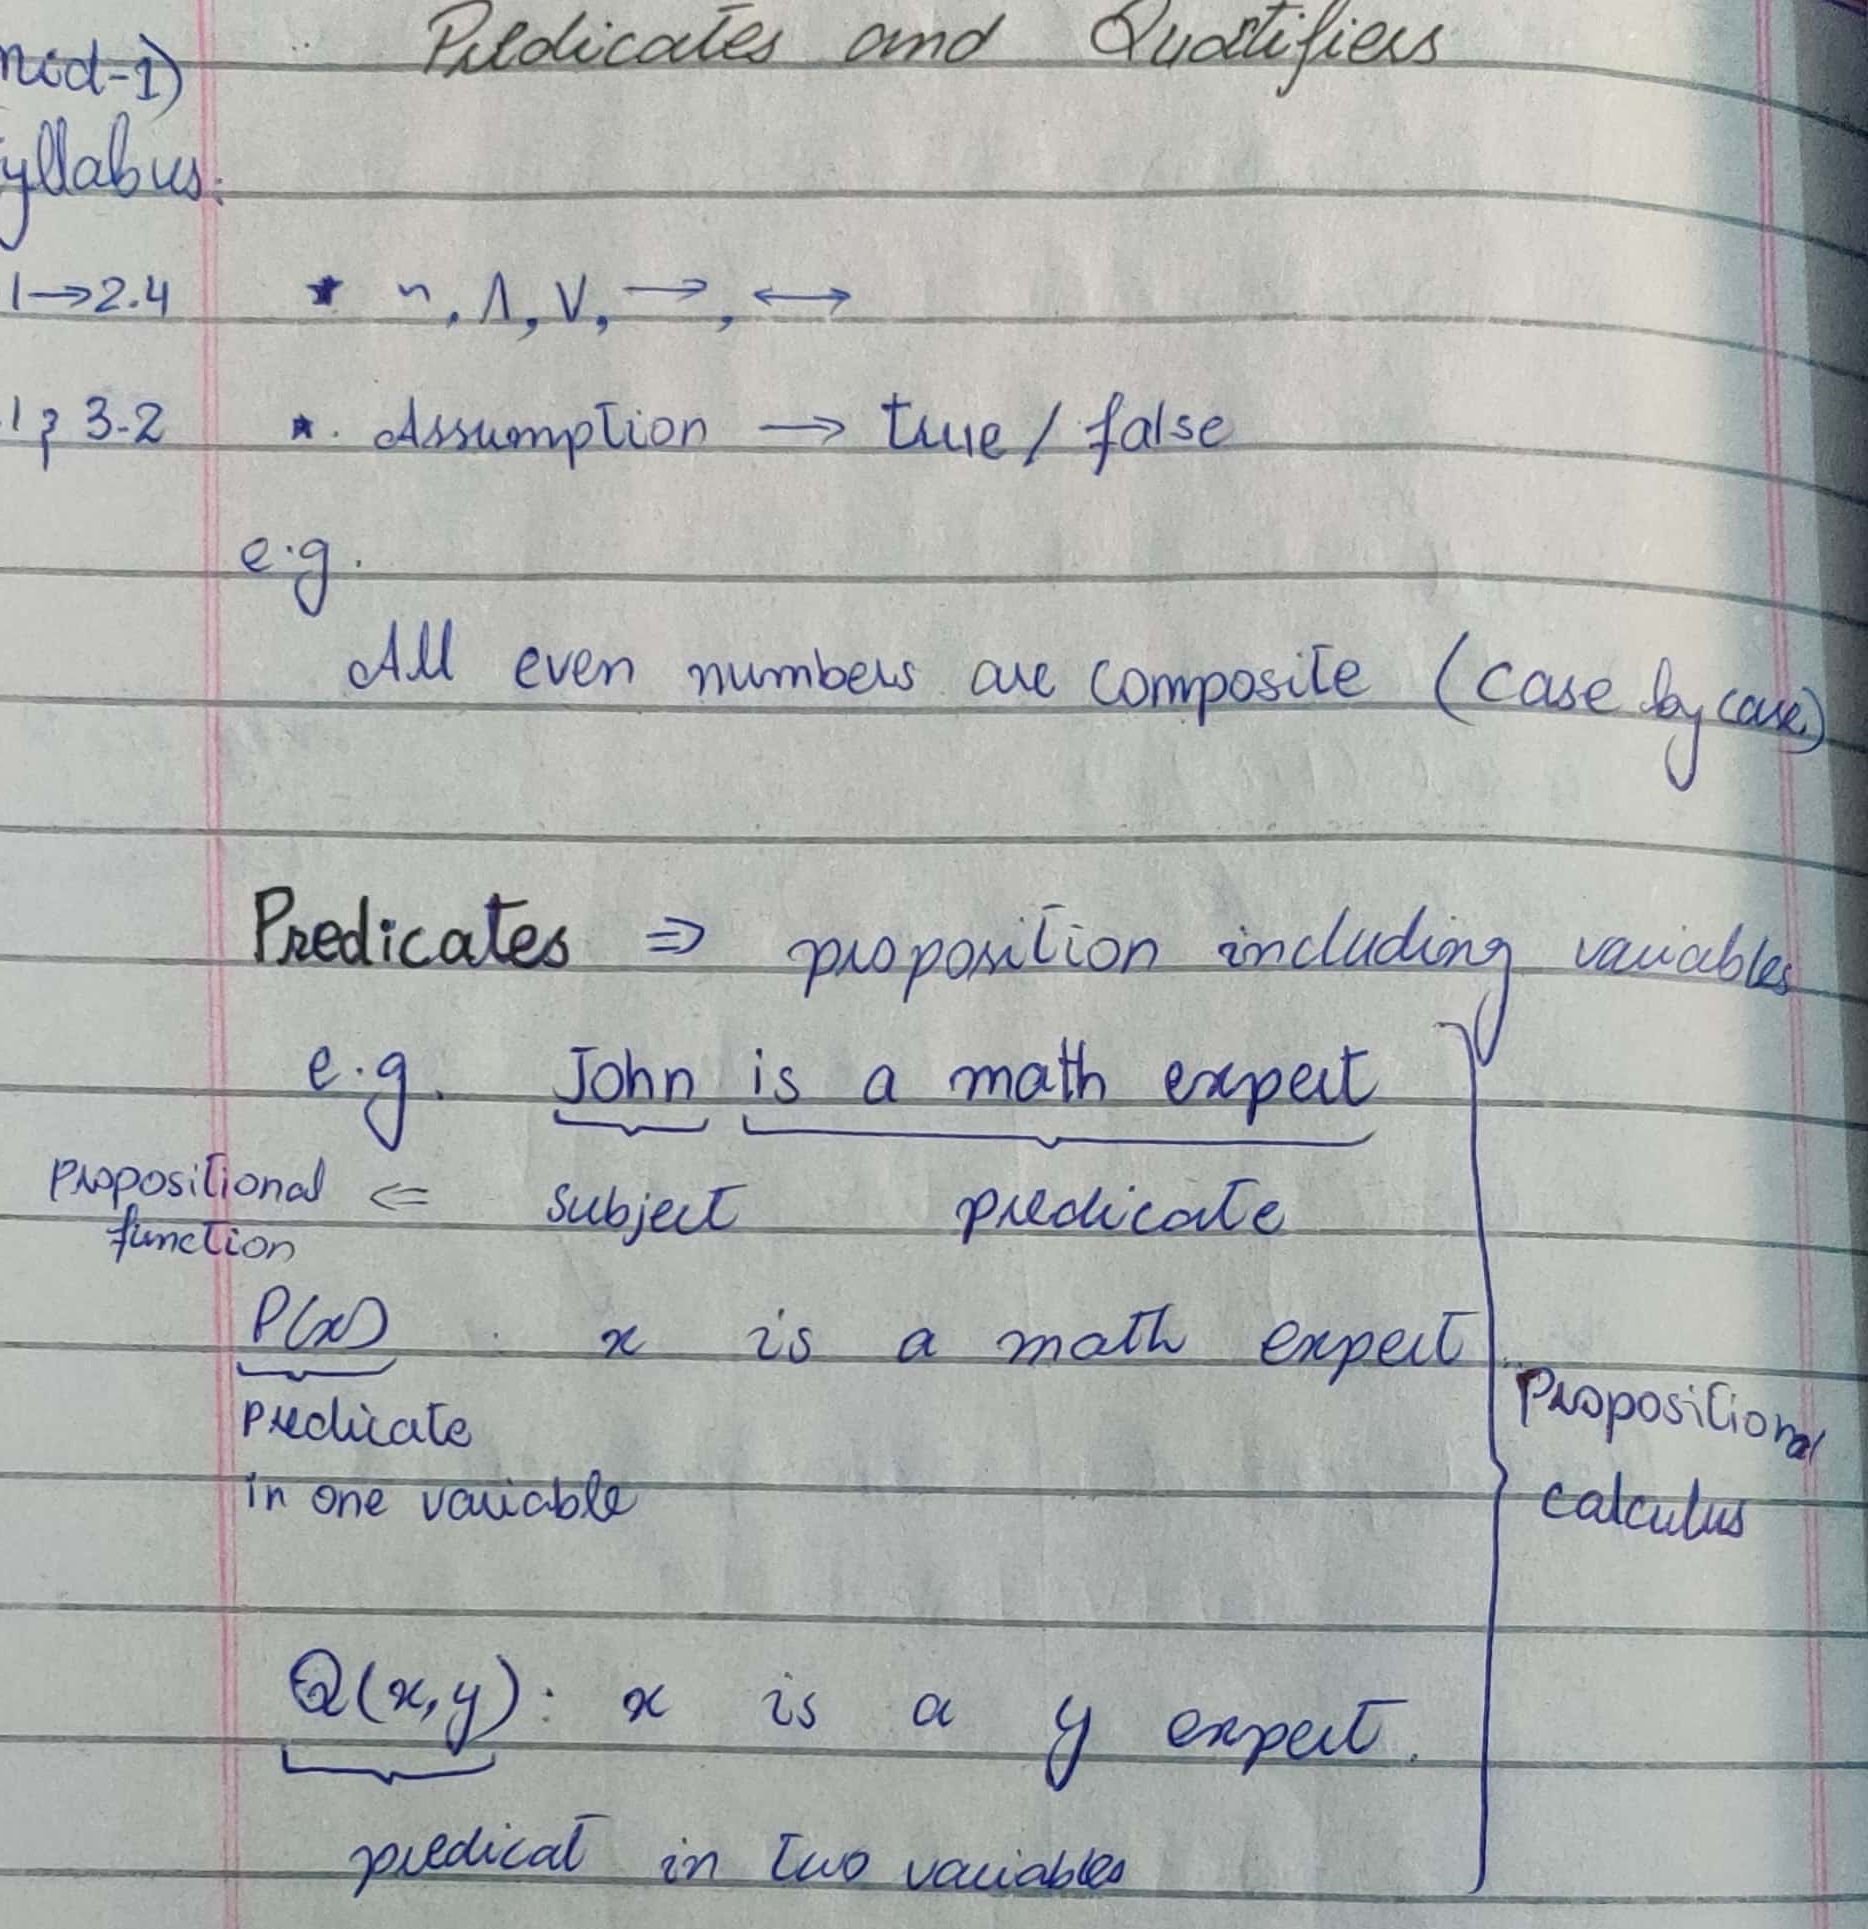 Predicates and Quatifiers
mid-1)
yllabus:
1→2.4
* ~, ∧, ∨, →, ↔
3.2
* Assumption → true / false
e.g.
All even numbers are composite (case by case)
Predicates ⇒ proposition including variables
e.g. John is a math expert
Propositional function ⇐ subject predicate
P(x) x is a math expert
predicate
in one variable
Propositional
calculus
Q(x,y): x is a y expert.
predicat in two variables